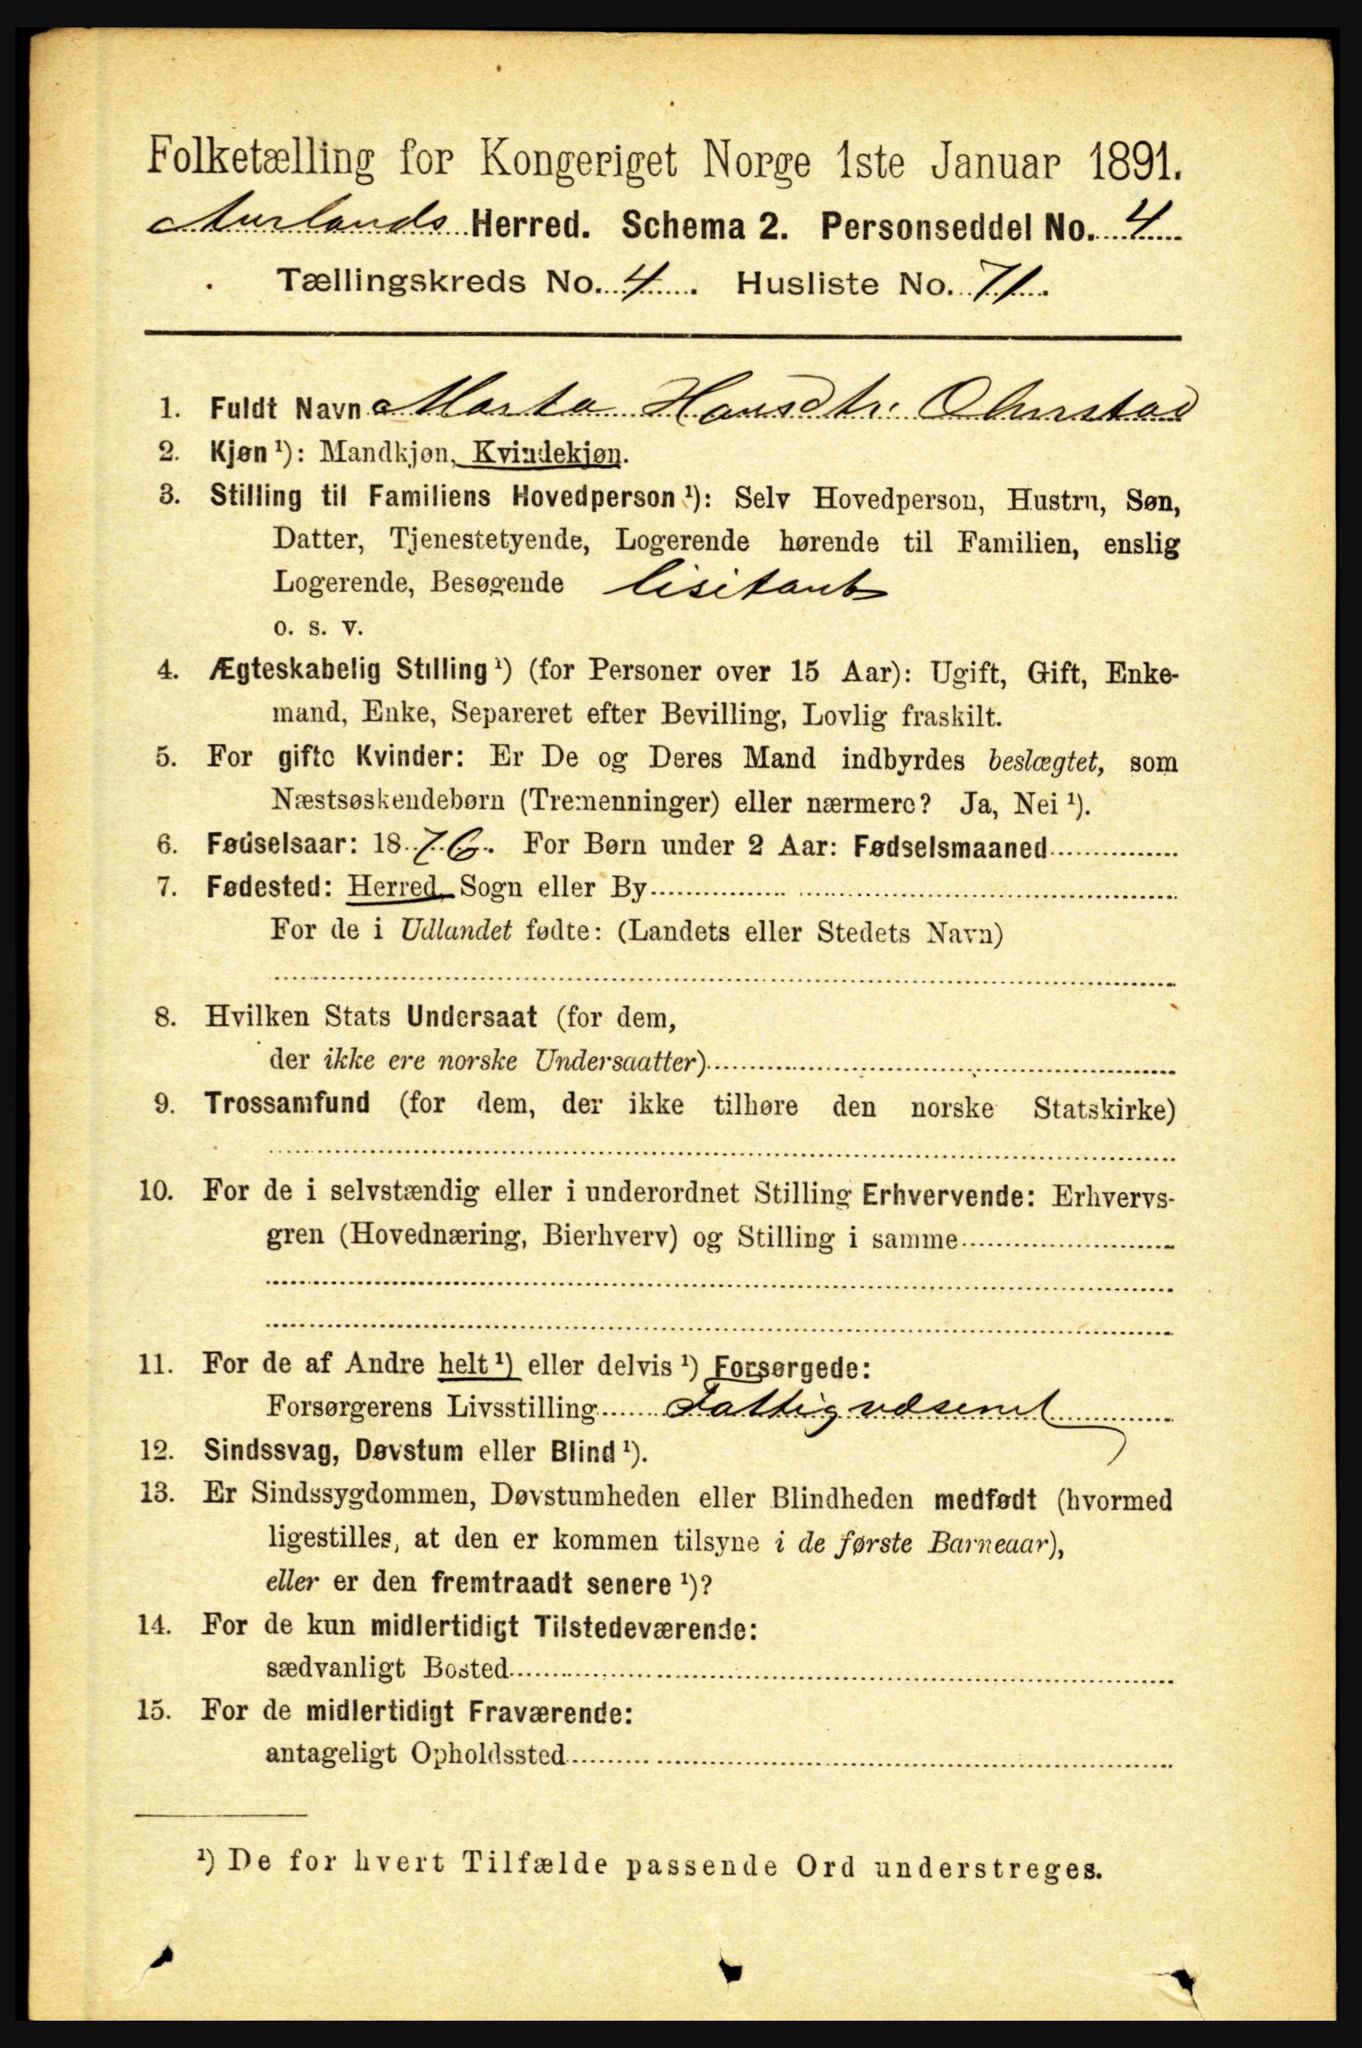 Folketælling for Kongeriget Norge 1ste Januar 1891.
Aurlands Herred. Schema 2. Personseddel No. 4
Tællingskreds No. 4. Husliste No. 71.
1. Fuldt Navn Marta Hansdtr. Ohnstad
2. Kjøn ¹): Mandkjøn, Kvindekjøn.
3. Stilling til Familiens Hovedperson ¹): Selv Hovedperson, Hustru, Søn,
Datter, Tjenestetyende, Logerende hørende til Familien, enslig
Logerende, Besøgende
o. s. v.
4. Ægteskabelig Stilling ¹) (for Personer over 15 Aar): Ugift, Gift, Enke-
mand, Enke, Separeret efter Bevilling, Lovlig fraskilt.
5. For gifte Kvinder: Er De og Deres Mand indbyrdes beslægtet, som
Næstsøskendebørn (Tremenninger) eller nærmere? Ja, Nei ¹).
6. Fødselsaar: 1876. For Børn under 2 Aar: Fødselsmaaned
7. Fødested: Herred, Sogn eller By
For de i Udlandet fødte: (Landets eller Stedets Navn)
8. Hvilken Stats Undersaat (for dem,
der ikke ere norske Undersaatter)
9. Trossamfund (for dem, der ikke tilhøre den norske Statskirke)
10. For de i selvstændig eller i underordnet Stilling Erhvervende: Erhvervs-
gren (Hovednæring, Bierhverv) og Stilling i samme
11. For de af Andre helt ¹) eller delvis ¹) Forsørgede:
Forsørgerens Livsstilling Fattigvæsenet
12. Sindssvag, Døvstum eller Blind ¹).
13. Er Sindssygdommen, Døvstumheden eller Blindheden medfødt (hvormed
ligestilles, at den er kommen tilsyne i de første Barneaar),
eller er den fremtraadt senere ¹)?
14. For de kun midlertidigt Tilstedeværende:
sædvanligt Bosted
15. For de midlertidigt Fraværende:
antageligt Opholdssted
¹) De for hvert Tilfælde passende Ord understreges.